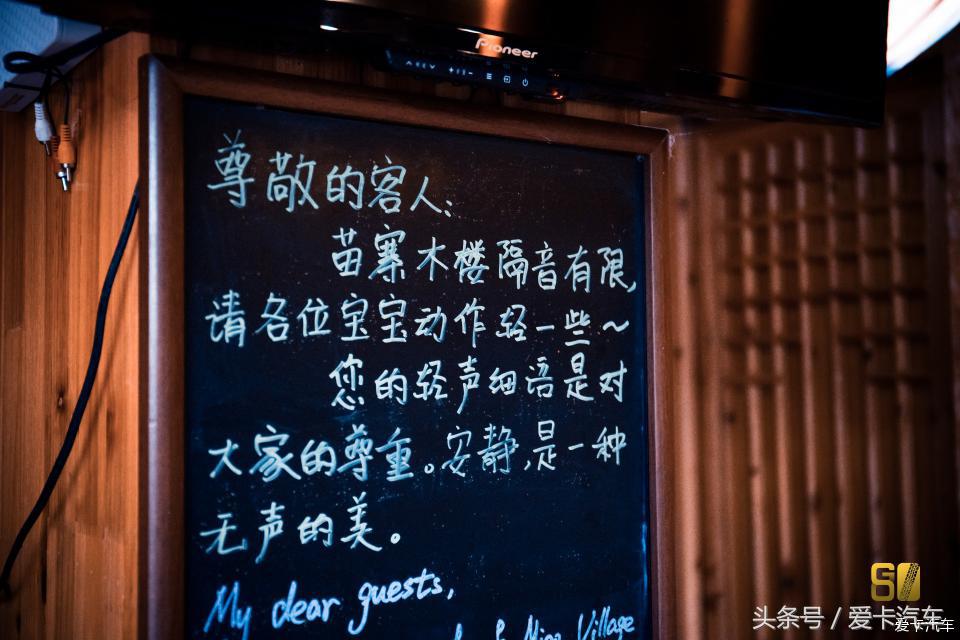 Pioneer
尊敬的客人:
苗寨木楼隔音有限,
请各位宝宝动作轻一些~
您的轻声细语是对
大家的尊重。安静,是一种
无声的美。
My dear guests,
Village
头条号 / 爱卡汽车
爱卡汽车